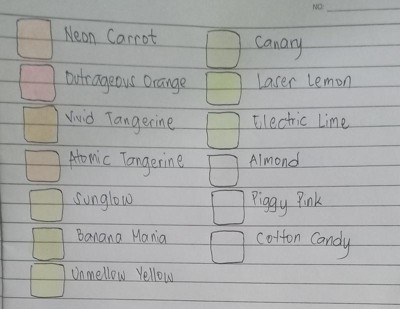 NO:
Neon Carrot
Outrageous Orange
Vivid Tangerine
Atomic Tangerine
Sunglow
Banana Mania
Unmellow Yellow
Canary
Laser Lemon
Electric Lime
Almond
Piggy Pink
Cotton Candy